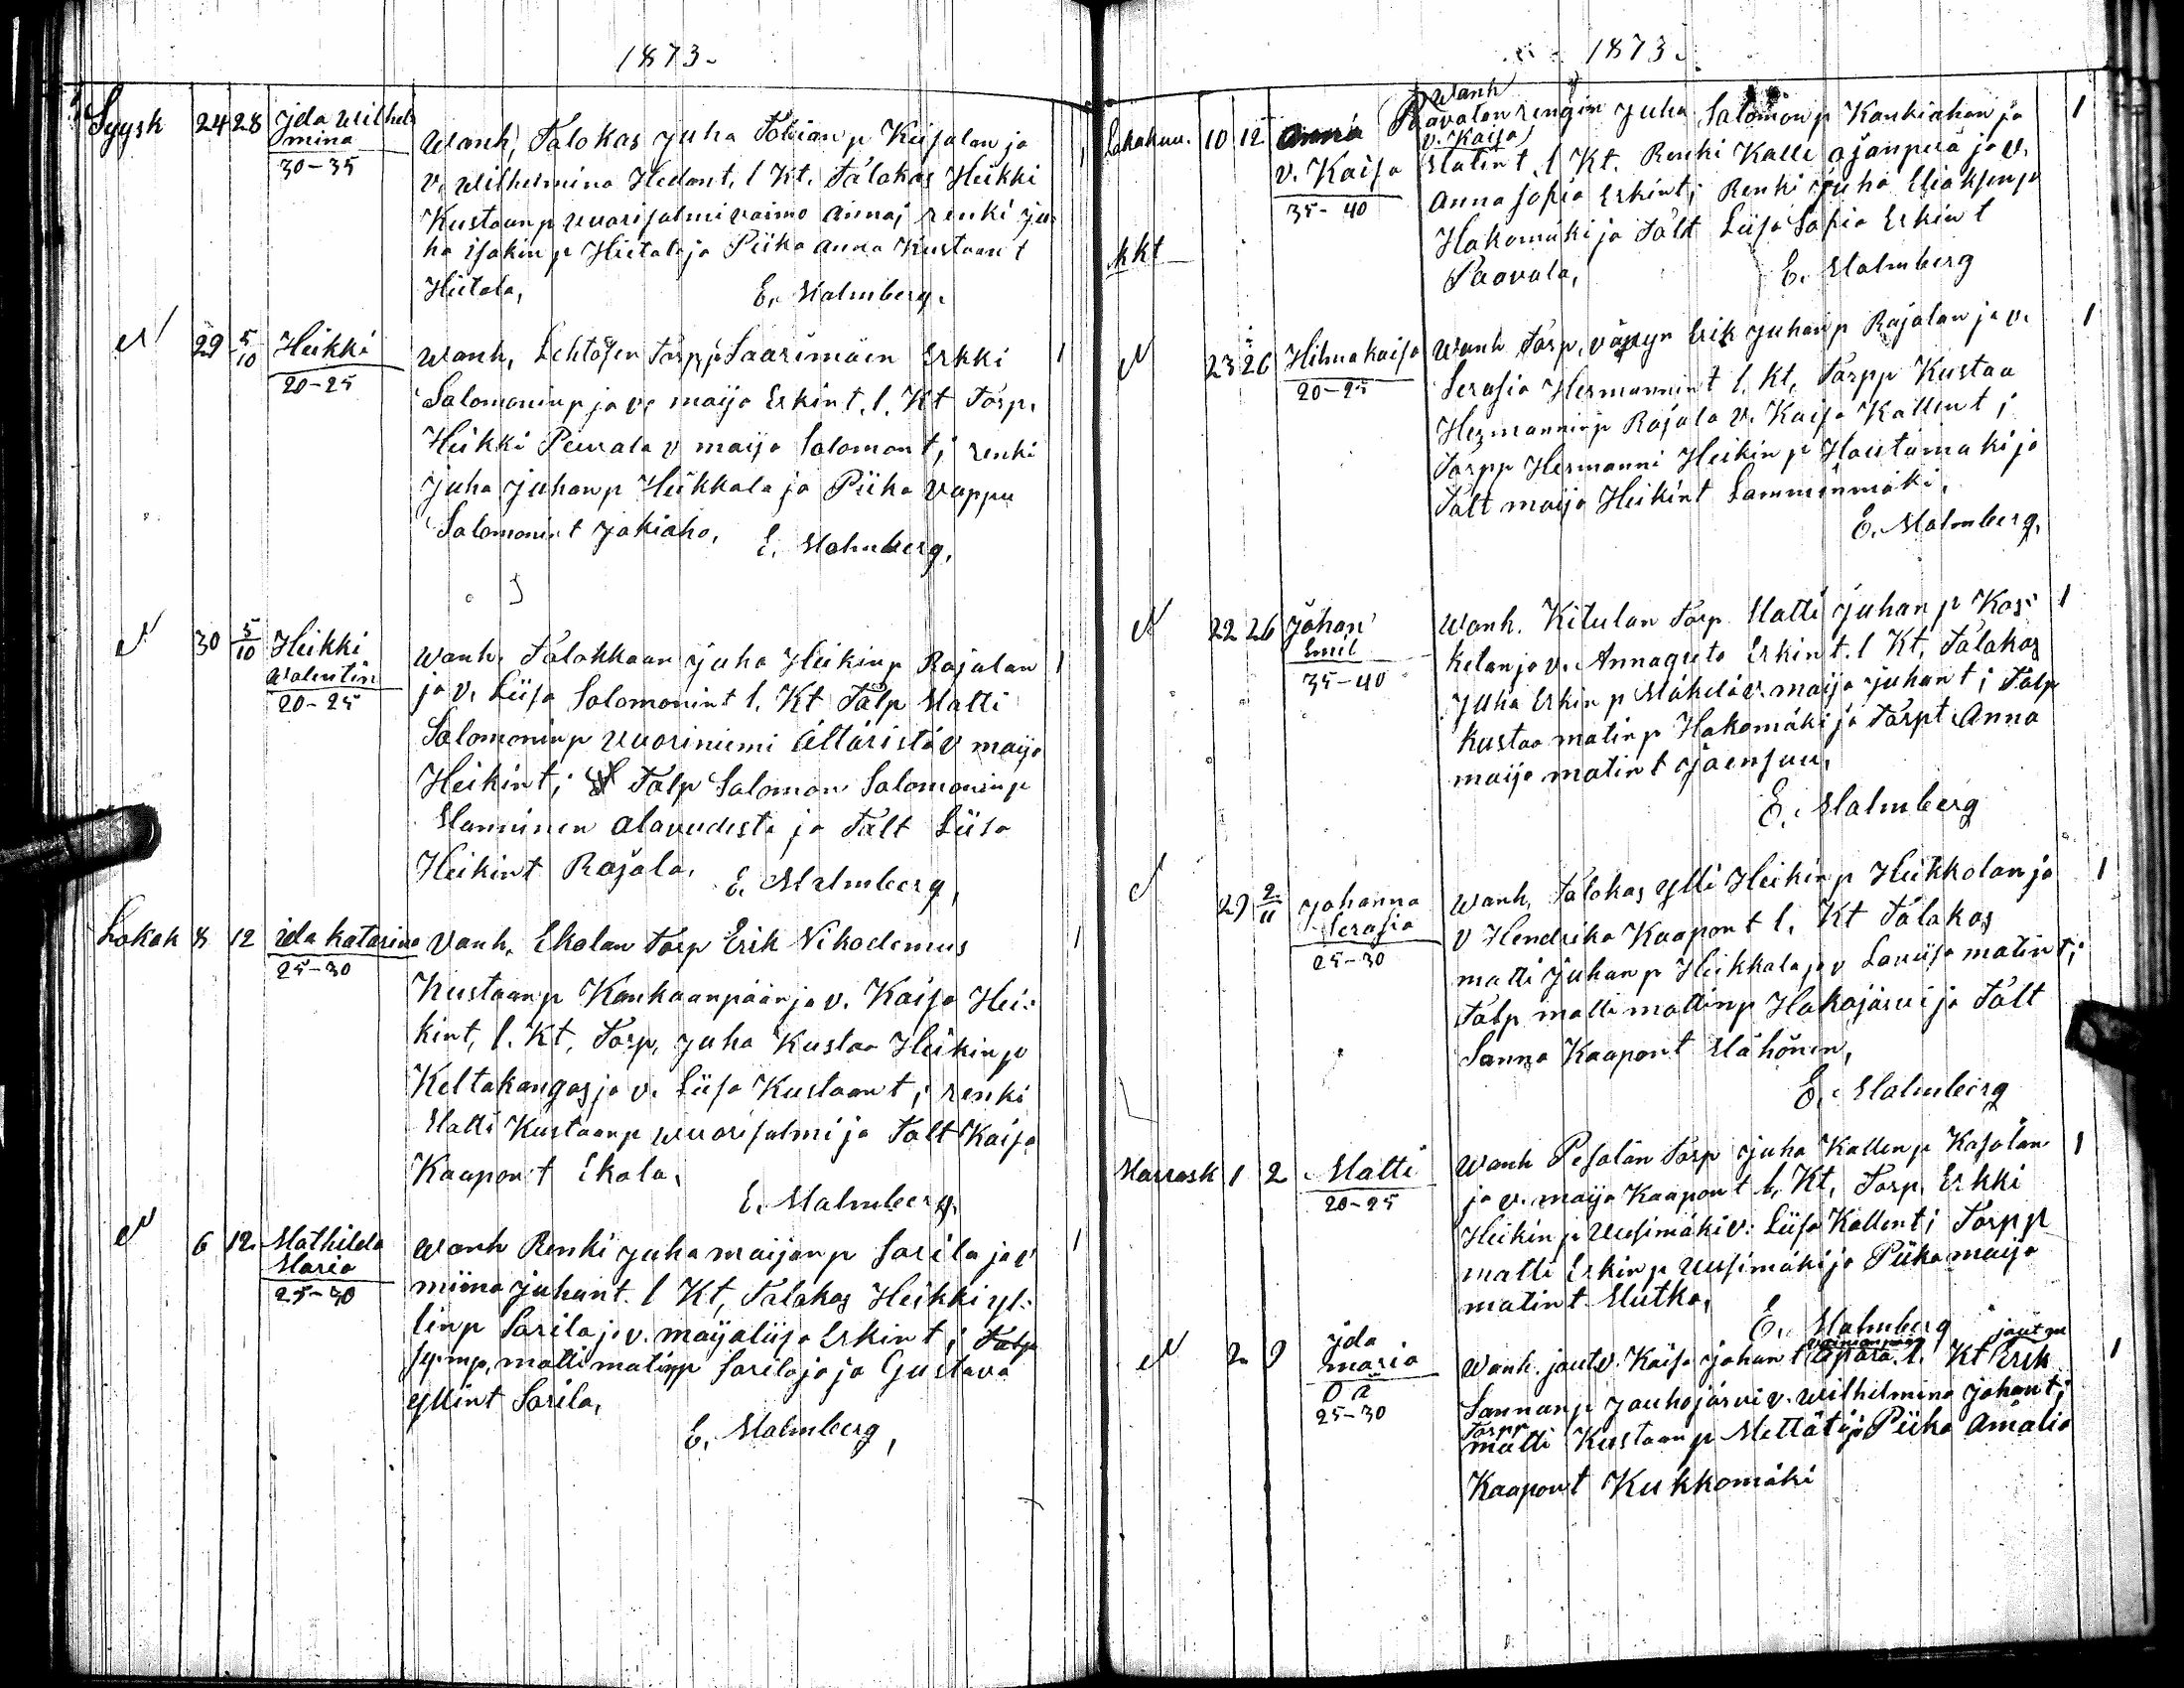 1873.
Syysk 24 28 Ida Wilhel
mina
30-35
Wanh, Talokas Juha Tobian p Kiisalan ja
v. Wilhelmina Hedant. l Kt. Talakas Heikki
Kustaan p Wuorisalmi vaimo Anna; renki Ju
ha Isakin p Hietala ja Piika Anna Kustaan t
Hietala,
E. Malmberg.
29 5/10 Heikki
20-25
Wanh, Lehtosen Torpp Saarimäen Erkki
Salomonin p ja v. maija Erkin t. l. Kt Torp.
Heikki Peurala v maija Salomon t; renki
Juha Juhan p Heikkala ja Piika Vappu
Salomonin t Jokiaho,
E. Malmberg,
30 5/10 Heikki
Walentin
20-25
Wanh. Talokkaan Juha Heikin p Rajalan
ja v. Liisa Salomonin t l. Kt Talp Matti
Salomonin p Wuoriniemi Ältäristä v maija
Heikin t; Talp Salomon Salomonin p
Manninen Alavudesta ja Talt Liisa
Heikin t Rajala.
E. Malmberg,
Lokak 8 12 ida katarina
25-30
Vanh. Ekolan Torp Erik Nikodemus
Kustaan p Kankaanpään ja v. Kaisa Hei:
kint, l. Kt, Torp, Juha Kustaa Heikin p
Keltakangas ja v. Liisa Kustaan t; renki
Matti Kustaan p Wuorisalmi ja Talt Kaisa
Kaapon t Ekola,
E. Malmberg.
6 12. Mathilda
Maria
25-30
Wanh Renki Juha maijan p Sarila ja v
miina Juhan t. l Kt, Talakas Heikki Yl:
lin p Sarila ja v. maijaliisa Erkin t; Talp
matti matin p Sarila ja Gustava
Yllin t Sarila,
E. Malmberg,
1873.
Wanh
Lokakuu. 10 12 Anna
v. Kaisa
35-40
Paavolan rengin Juha Salomon p Kankiahon ja
v. Kaisa
Matin t. l Kt. Renki Kalle Ojanperä ja v.
Anna Sofia Erkin t; Renki Juha Eliaksen p
Hakomäki ja Talt Liisa Sofia Erkin t
Paavola,
E. Malmberg
kkt
23 26 Hilma Kaisa
20-25
Wanh Torp, vävyn Erik Juhan p Rajalan ja v.
Serafia Hermannin t l. Kt, Torpp Kustaa
Hermannin p Rajala v. Kaisa Kallen t;
Torpp Hermanni Heikin p Hautamäki ja
Talt maija Heikin t Lamminmäki,
E. Malmberg,
22 26 Johan
Emil
35-40
Wanh. Kitulan Torp Matti Juhan p Kos:
kelan ja v. Annagreta Erkin t. l Kt, Talakas
Juha Erkin p Mäkelä v. maija Juhan t; Talp
Kustaa matin p Hakomäki ja Torpt Anna
maija matin t Ojaensuu,
E. Malmberg
29 2/11 Johanna
Serafia
25-30
Wanh, Talokas Ylli Heikin p Heikkolan ja
v Hendrika Kaapon t l. Kt Talakas
matti Juhan p Heikkala ja v Loviisa matin t;
Talp matti mattin p Hakojärvi ja Talt
Sanna Kaapon t Mähönen,
E. Malmberg
Marrask 1 2 Matti
20-25
Wanh Pesolan Torp Juha Kallen p Kasolan
ja v. maija Kaapon t l. Kt, Torp, Erkki
Heikin p Uusimäki v: Liisa Kallen t; Torpp
matti Erkin p Uusimäki ja Piika maija
matin t Mutka,
E. Malmberg
2 9 Ida
maria
Oä
25-30
Wanh. jautv. Kaisa Johan t l. Kt Erik
Sannan p Jauhojärvi v. Wilhelmina Johan t;
Torpp
matti Kustaan p Mettälä ja Piika Amalia
Kaapon t Kukkomäki